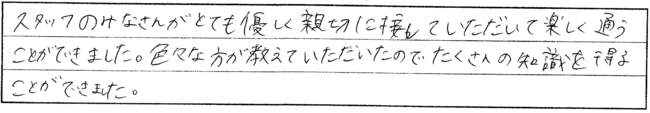 スタッフのみなさんがとても優しく親切に接していただいて楽しく通う
ことができました。色々な方が教えていただいたのでたくさんの知識を得る
ことができました。